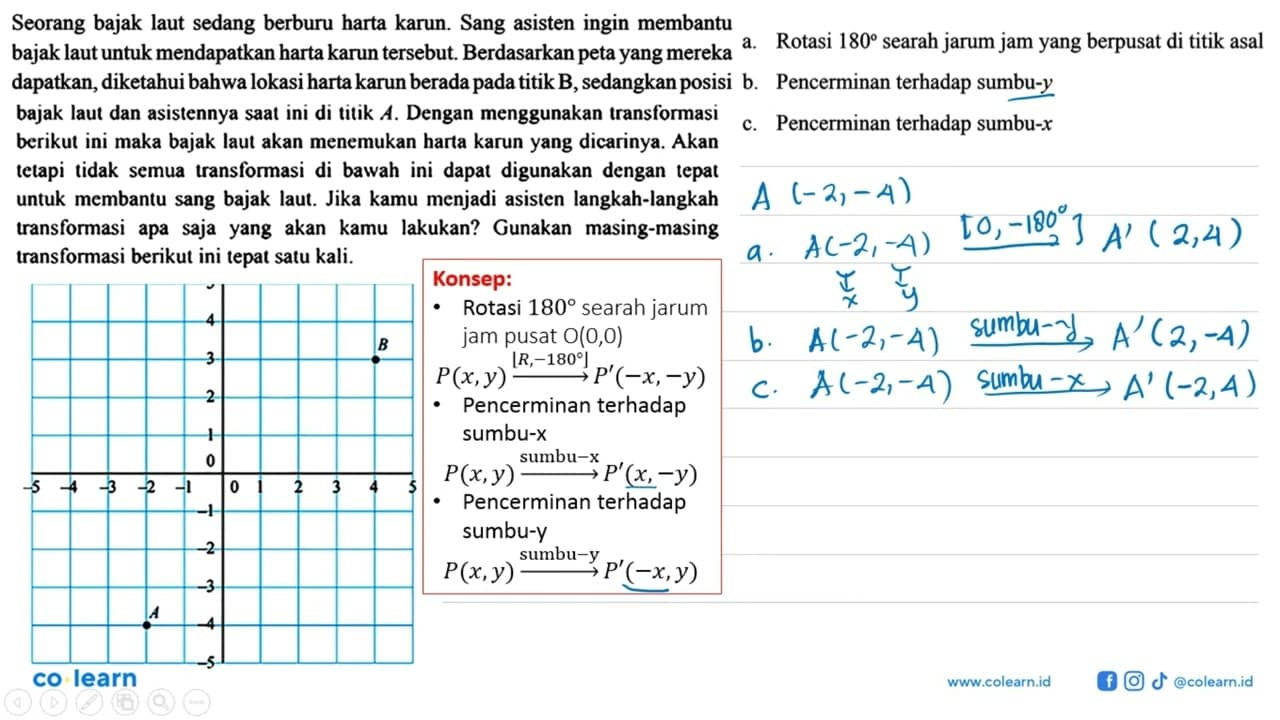 Seorang bajak laut sedang berburu harta karun. Sang asisten ingin membantu
bajak laut untuk mendapatkan harta karun tersebut. Berdasarkan peta yang mereka
dapatkan, diketahui bahwa lokasi harta karun berada pada titik B, sedangkan posisi
bajak laut dan asistennya saat ini di titik A. Dengan menggunakan transformasi
berikut ini maka bajak laut akan menemukan harta karun yang dicarinya. Akan
tetapi tidak semua transformasi di bawah ini dapat digunakan dengan tepat
untuk membantu sang bajak laut. Jika kamu menjadi asisten langkah-langkah
transformasi apa saja yang akan kamu lakukan? Gunakan masing-masing
transformasi berikut ini tepat satu kali.
a. Rotasi 180° searah jarum jam yang berpusat di titik asal
b. Pencerminan terhadap sumbu-y
c. Pencerminan terhadap sumbu-x
A (-2,-4)
a. A(-2,-4) [0,-180°] A' (2,4)
x y
b. A(-2,-4) sumbu-y → A'(2,-4)
c. A(-2,-4) sumbu-x → A'(-2,4)
Konsep:
• Rotasi 180° searah jarum
jam pusat O(0,0)
[R,−180°]
P(x,y) → P′(−x,−y)
• Pencerminan terhadap
sumbu-x
sumbu−x
P(x,y) → P′(x,−y)
• Pencerminan terhadap
sumbu-y
sumbu−y
P(x,y) → P′(−x,y)
4
B
3
2
1
0
-5 -4 -3 -2 -1 0 1 2 3 4 5
-1
-2
-3
A
-4
-5
co learn
www.colearn.id
@colearn.id